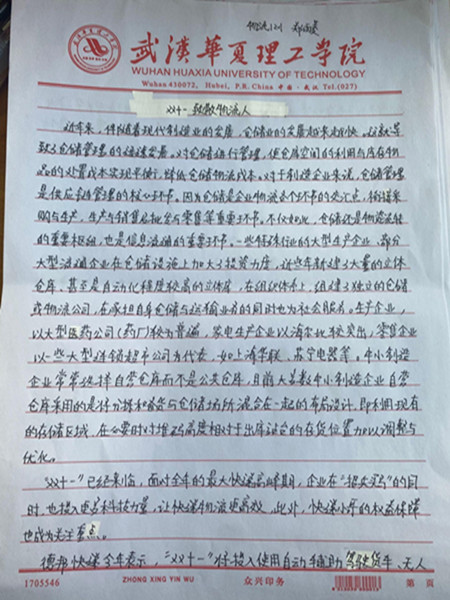 物流1201
武漢華夏理工学院
WUHAN HUAXIA UNIVERSITY OF TECHNOLOGY
Wuhan 430072, Hubei, P.R. China 中国·武汉 Tel.(027)
双十一 致敬物流人
近年来，伴随着现代制造业的发展，仓储业的发展越来越快。这就导
致了仓储管理的迅速发展。对仓储进行管理，使仓库空间的利用与库存物
品的处置成本实现平衡，降低仓储物流成本。对于制造企业来说，仓储管理
是供应链管理的核心环节。因为仓储是企业物流各个环节的交汇点，衔接采
购与生产，生产与销售，批发与零售等重要环节。不仅如此，仓储还是物流运转
的重要枢纽，也是信息流通的重要环节。一些特殊行业的大型生产企业、部分
大型流通企业在仓储设施上加大了投资力度，近些年新建了大量的立体
仓库、甚至是自动化程度较高的立体库，在组织体系上，组建了独立的仓储
或物流公司，在承担自身仓储与运输业务的同时也为社会服务。生产企业，
以大型医药公司（药厂）较为普遍，家电生产企业以海尔比较突出，零售企业
以一些大型连锁超市公司为代表，如上海华联、苏宁电器等。中小制造
企业常常选择自营仓库而不是公共仓库，目前大多数中小制造企业自营
仓库采用的是将分拣和储存与仓储场所混合在一起的布局设计，即利用现有
的存储区域，在必要时对堆码高度相对于出库适合的存货位置加以调整与
优化。
“双十一”已经来临，面对全年的最大快递高峰期，企业在“招兵买马”的同
时，也投入更多科技力量，让快递物流更高效。此外，快递小哥的权益保障
也成为关注重点。
德邦快递今年表示，“双十一”将投入使用自动辅助驾驶货车、无人
1705546
ZHONG XING YIN WU
众兴印务
第 页